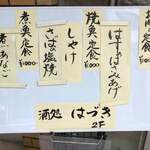 焼魚定食
¥1000
はすずけみあげ
しゃけ
さばの塩焼
煮魚定食
¥1000
煮あなご
酒処 はづき
2F